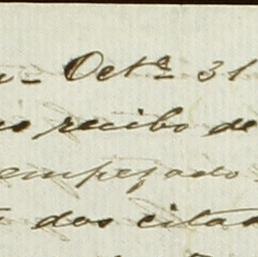 Octe 31
recibo de
empezado
dos citad